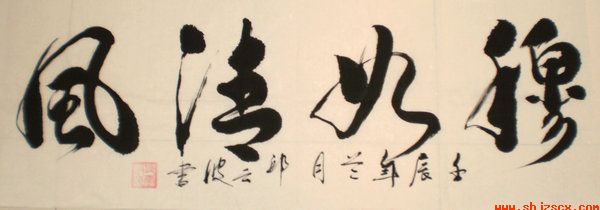 穆如清风
壬辰年兰月邱云波书
www.shizscx.com